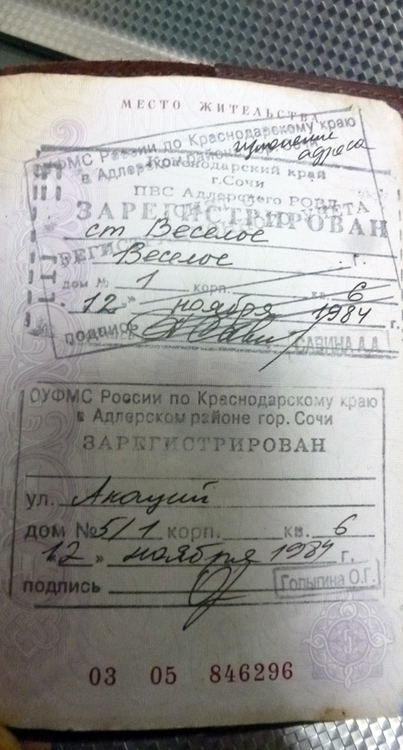 МЕСТО ЖИТЕЛЬСТВА
ОУФМС России по Краснодарскому краю
в Адлерском районе
изменение
адреса
Краснодарский край
г.Сочи
ПВС Адлерского РОВД
ЗАРЕГИСТРИРОВАН
ст Веселое
Веселое
дом № 1 корп. кв. 6
12 " ноября 1984 г.
подпись САВИНА А.А.
ОУФМС России по Краснодарскому краю
в Адлерском районе гор. Сочи
ЗАРЕГИСТРИРОВАН
ул. Акаций
дом № 5/1 корп. кв. 6
12 » ноября 1984 г.
подпись Голыгина О.Г.
03 05 846296